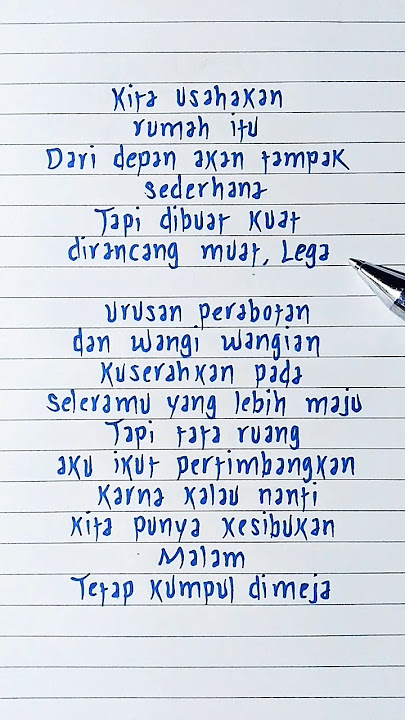 Kita usahakan
rumah itu
Dari depan akan tampak
sederhana
Tapi dibuat kuat
dirancang muat, Lega
urusan perabotan
dan wangi wangian
Kuserahkan pada
seleramu yang lebih maju
Tapi tata ruang
aku ikut pertimbangkan
Karna kalau nanti
kita punya kesibukan
Malam
Tetap kumpul dimeja